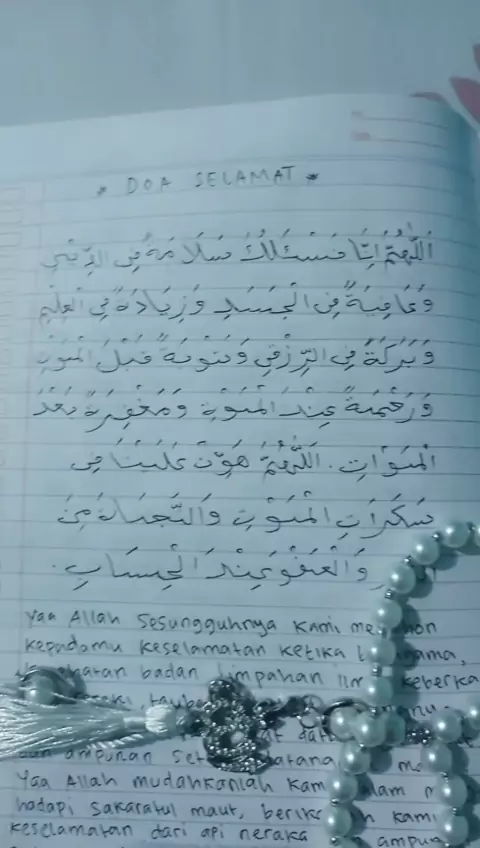 * DOA SELAMAT *
اَللّٰهُمَّ اِنَّا نَسْئَلُكَ سَلَامَةً فِى الدِّيْنِ
وَعَافِيَةً فِى الْجَسَدِ وَزِيَادَةً فِى الْعِلْمِ
وَبَرَكَةً فِى الرِّزْقِ وَتَوْبَةً قَبْلَ الْمَوْتِ
وَرَحْمَةً عِنْدَ الْمَوْتِ وَمَغْفِرَةً بَعْدَ
الْمَوْتِ. اَللّٰهُمَّ هَوِّنْ عَلَيْنَا فِى
سَكَرَاتِ الْمَوْتِ وَالنَّجَاةَ مِنَ
وَالْعَفْوَ عِنْدَ الْحِسَابِ.
Yaa Allah sesungguhnya kami
kepadamu keselamatan ketika
badan limpahan
ampunan
Yaa Allah mudahkanlah
hadapi sakaratul maut, kami
keselamatan dari api neraka